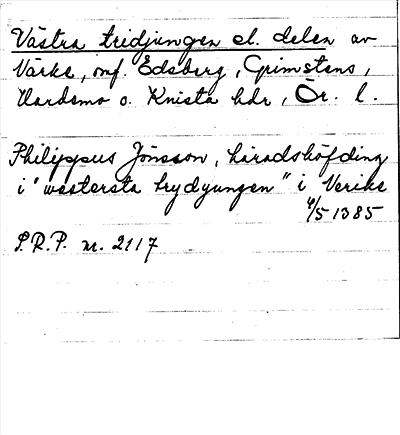 Västra tridjungen el. delen av
Närke, omf. Edsberg, Grimstens,
Hardemo o. Knista hdr, Ör. l.
Philippus Jönsson, häradshöfding
i "westersta trydyungen" i Nerike
4/5 1385
S.R.P. nr. 2117